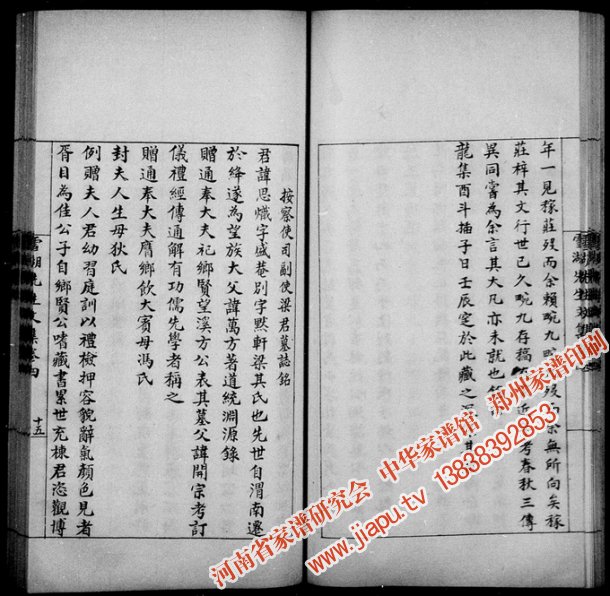 年一見稼莊歿而余賴畹九畹
歿而余無所向矣稼
莊梓其文行世已久畹九存稿
近
考春秋三傳
異同嘗為余言其大凡亦未就也
龍集酉斗插子日壬辰窆於此藏之深
按察使司副使梁君墓誌銘
君諱思熾字盛菴別字默軒梁其氏也先世自渭南遷
於絳遂為望族大父諱萬方著道統淵源錄
贈通奉大夫祀鄉賢望溪方公表其墓父諱開宗考訂
儀禮經傳通解有功儒先學者稱之
贈通奉大夫膺鄉飲大賓母馮氏
封夫人生母狄氏
例贈夫人君幼習庭訓以禮檢押容貌辭氣顏色見者
胥目為佳公子自鄉賢公嗜藏書累世充棟君恣觀博
十五
河南省家谱研究会 中华家谱馆 郑州家谱印刷
www.jiapu.tv 13838392853